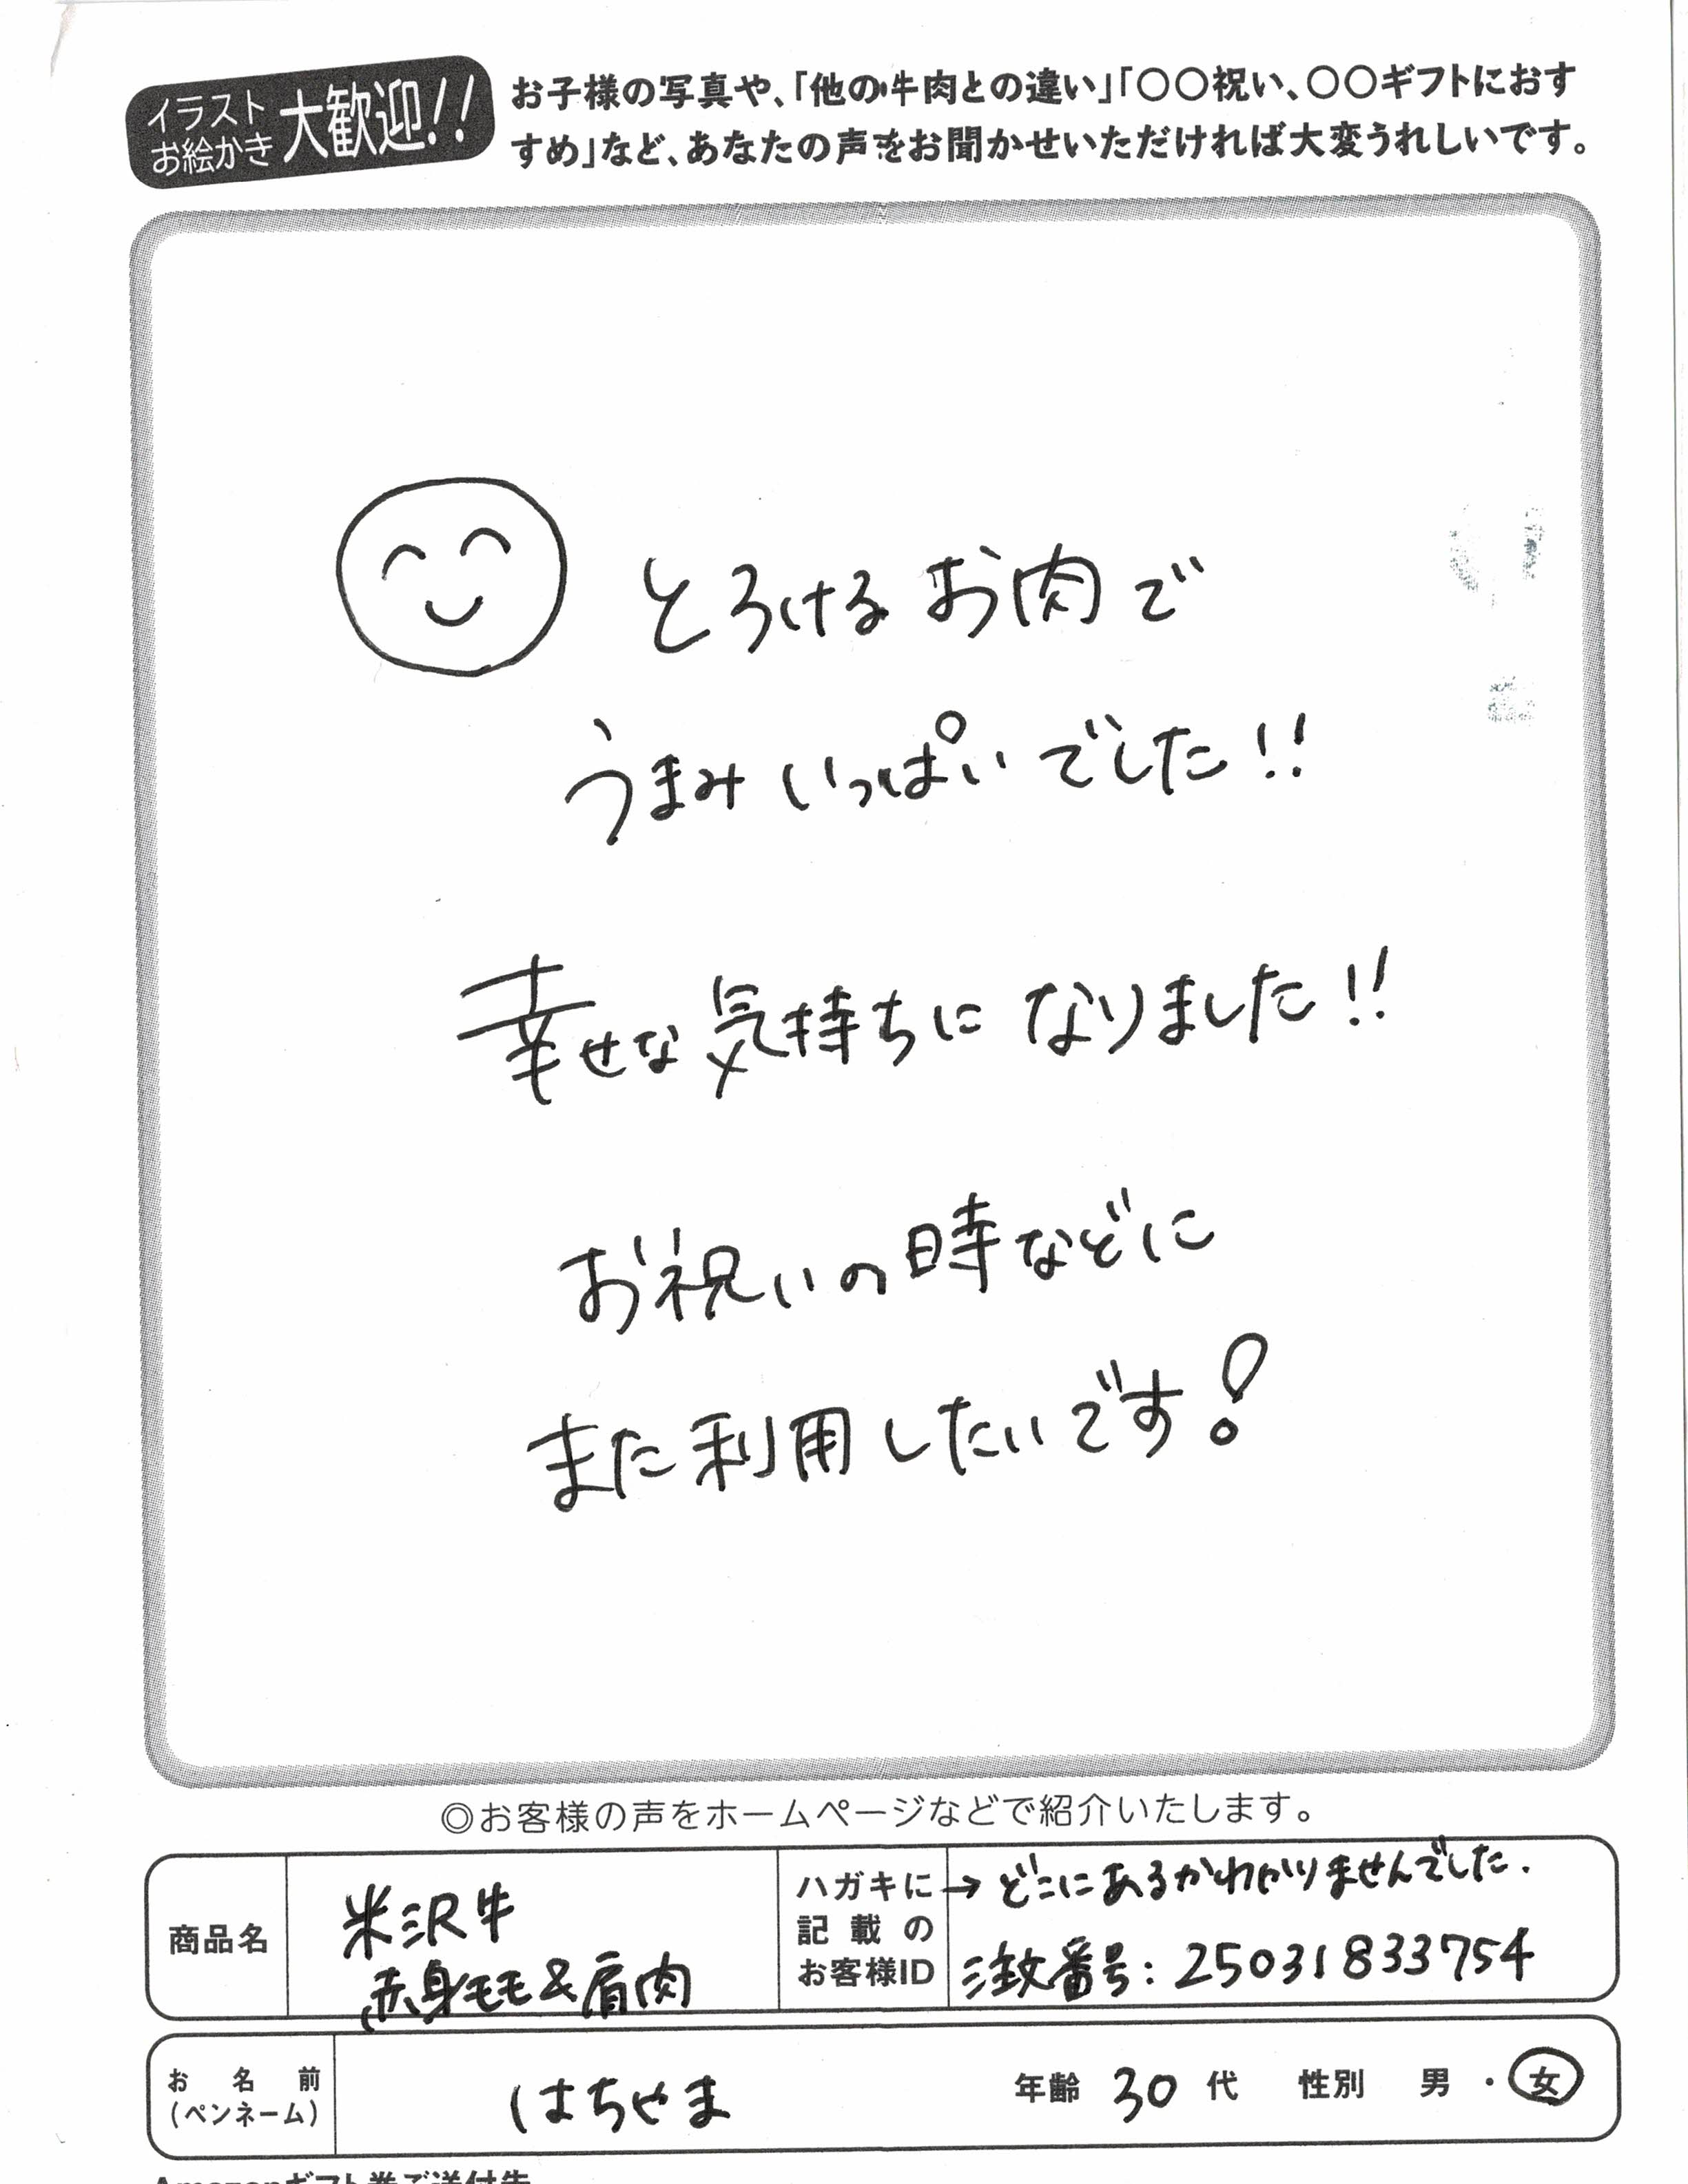 イラスト
お絵かき
大歓迎!!
お子様の写真や、「他の牛肉との違い」「〇〇祝い、〇〇ギフトにおす
すめ」など、あなたの声をお聞かせいただければ大変うれしいです。
とろけるお肉で
うまみいっぱいでした!!
幸せな気持ちになりました!!
お祝いの時などに
また利用したいです!
◎お客様の声をホームページなどで紹介いたします。
商品名
米沢牛
赤身モモ&肩肉
ハガキに
記載の
お客様ID
→どこにあるかわかりませんでした.
注文番号:25031833754
お名前
(ペンネーム)
はちやま
年齢 30 代 性別 男・女
Amazonギフト券ご送付先